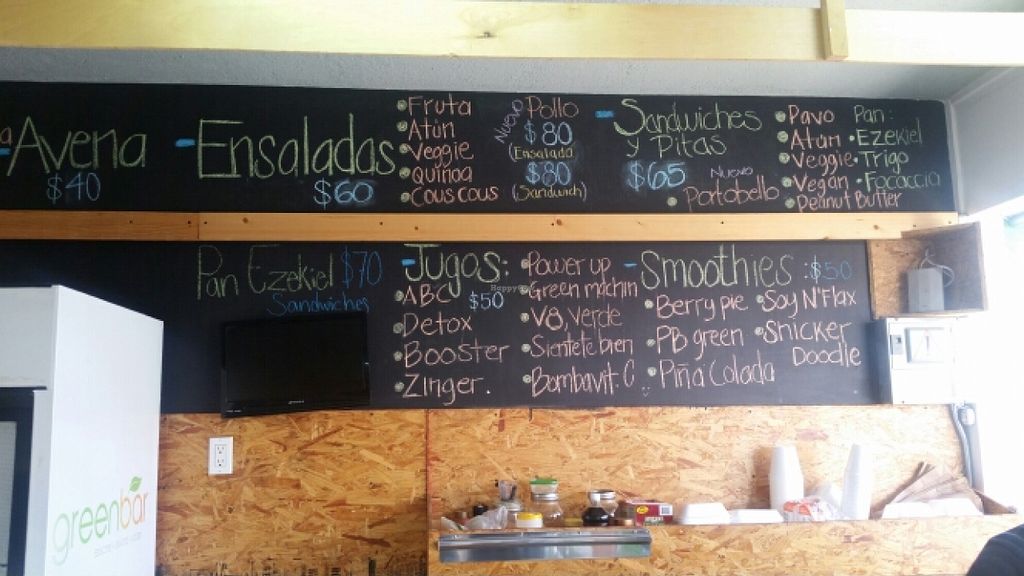 - Avena
$40
- Ensaladas
$60
Fruta
Atún
Veggie
Quinoa
Couscous
Nuevo
Pollo
$80
(Ensalada)
$80
(Sandwich)
- Sandwiches
y Pitas
$65
Nuevo
Portobello
Pavo
Atún
Veggie
Vegan
Peanut Butter
Pan:
Ezekiel
Trigo
Focaccia
Pan Ezekiel $70
Sandwiches
- Jugos:
$50
ABC
Detox
Booster
Zinger.
Power up
Green machin
V8, Verde
Sientete bien
Bombavit. C
- Smoothies: $50
Berry pie
PB green
Piña Colada
Soy N'Flax
Snicker
Doodle
greenbar